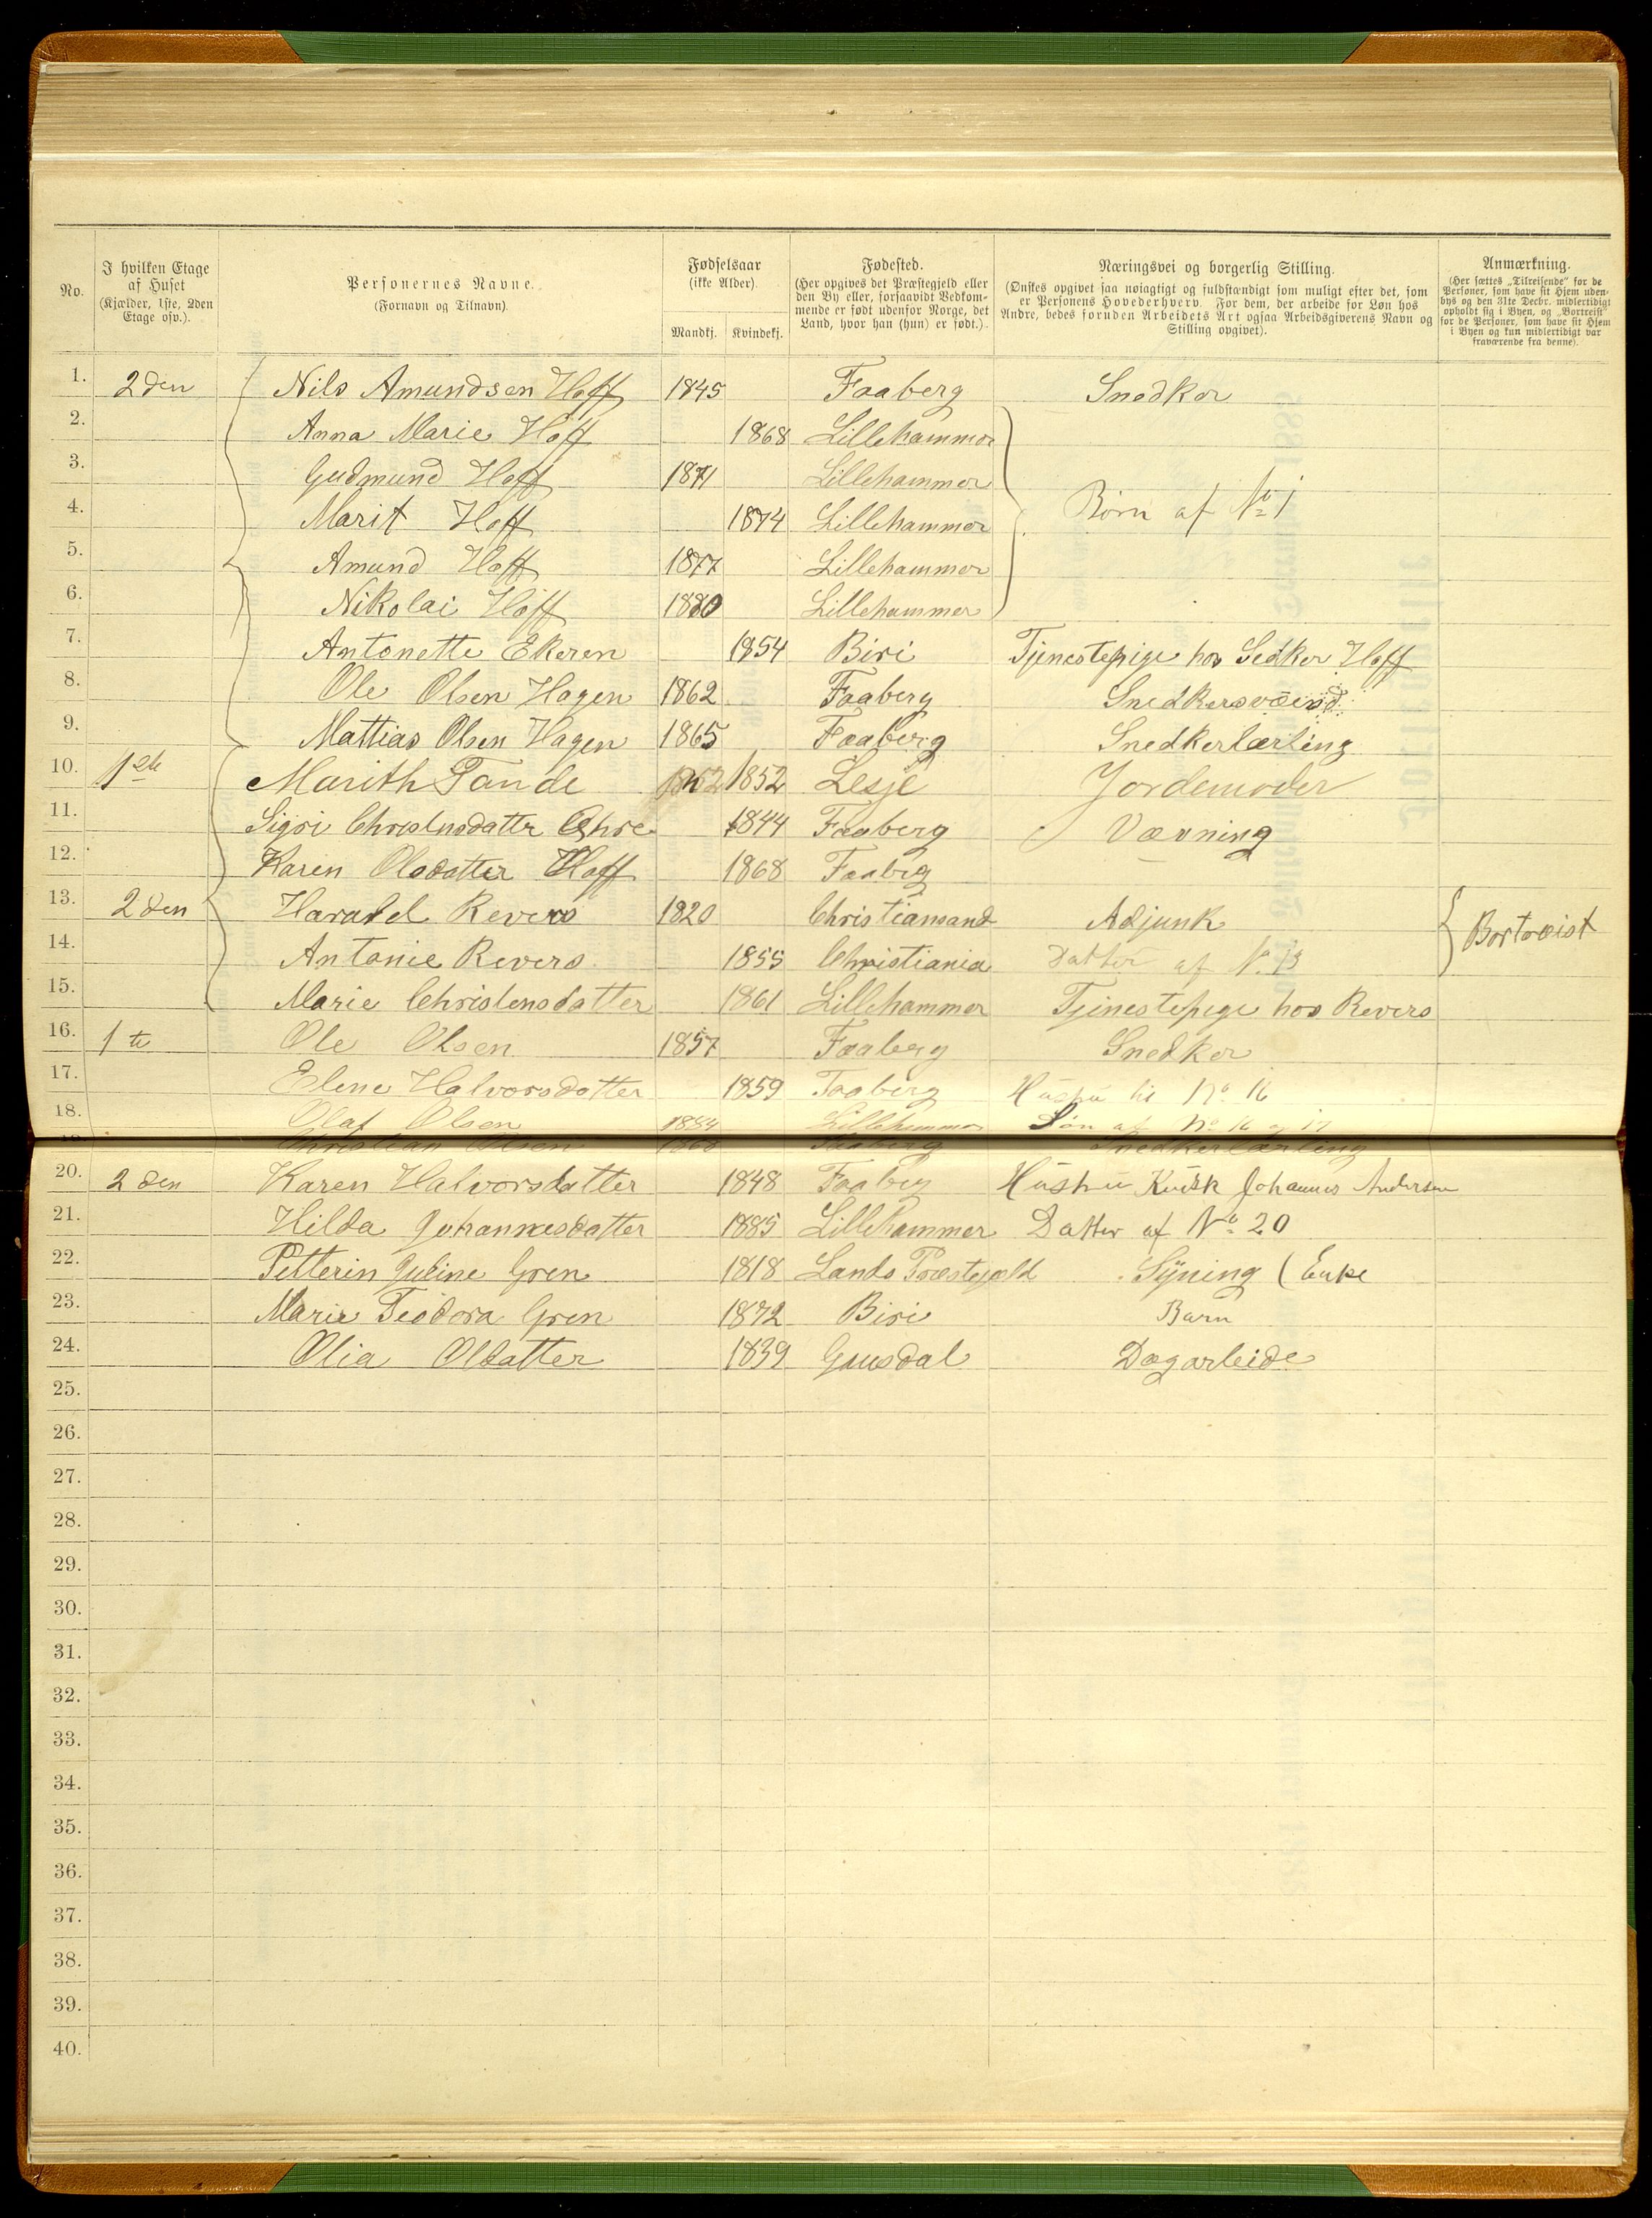 No. | I hvilken Etage af Huset (Kjælder, 1ste, 2den Etage osv.). | Personernes Navne. (Fornavn og Tilnavn). | Fødselsaar (ikke Alder). Mandkj. Kvindekj. | Fødested. (Her opgives det Præstegjeld eller den By eller, forsaavidt Vedkommende er født udenfor Norge, det Land, hvor han (hun) er født.). | Næringsvei og borgerlig Stilling. (Ønskes opgivet saa nøiagtigt og fuldstændigt som muligt efter det, som er Personens Hovederhverv. For dem, der arbeide for Løn hos Andre, bedes foruden Arbeidets Art ogsaa Arbeidsgiverens Navn og Stilling opgivet). | Anmærkning. (Her sættes „Tilreisende" for de Personer, som have sit Hjem udenbys og den 31te Decbr. midlertidigt opholdt sig i Byen, og „Bortreist" for de Personer, som have sit Hjem i Byen og kun midlertidigt var fraværende fra denne).
1. 2den Nils Amundsen Hoff 1845 Faaberg Snedker
2. Anna Marie Hoff 1868 Lillehammer
3. Gudmund Hoff 1871 Lillehammer
4. Marit Hoff 1874 Lillehammer Börn af No 1
5. Amund Hoff 1877 Lillehammer
6. Nikolai Hoff 1880 Lillehammer
7. Antonette Ekeren 1854 Biri Tjenestepige hos Sedker Hoff
8. Ole Olsen Hagen 1862 Faaberg Snedkersvend
9. Mattias Olsen Hagen 1865 Faaberg Snedkerlærling
10. 1ste Marith Tande 1852 Lesje Jordemoder
11. Sigri 1844 Faaberg Vævning
12. Karen Olsdatter Hoff 1868 Faabrg
13. 2den Harald Revers 1820 Christiansand Adjunk Bortreist
14. Antonie Revers 1855 Christiania Datter af No. 13
15. Marie Christensdatter 1861 Lillehammer Tjenestepige hos Revers
16. 1te Ole Olsen 1857 Faaberg Snedker
17. Elene Halvorsdatter 1859 Faaberg Hustru til No. 16
18. Olaf Olsen 1884 Lillehammer Søn af No 16 og 17
19. Christian Olsen 1868 Faaberg Snedkerlærling
20. 2den Karen Halvorsdatter 1848 Faaberg Hustru Kusk Johannes Andersen
21. Hilda Johannesdatter 1885 Lillehammer Datter af No 20
22. Petterin Juline Gren 1818 Lands Præstegjæld Syning (Enke
23. Marie Teodora Gren 1872 Biri Barn
24. Olia Oldatter 1839 Gausdal Dagarbeide
25.
26.
27.
28.
29.
30.
31.
32.
33.
34.
35.
36.
37.
38.
39.
40.